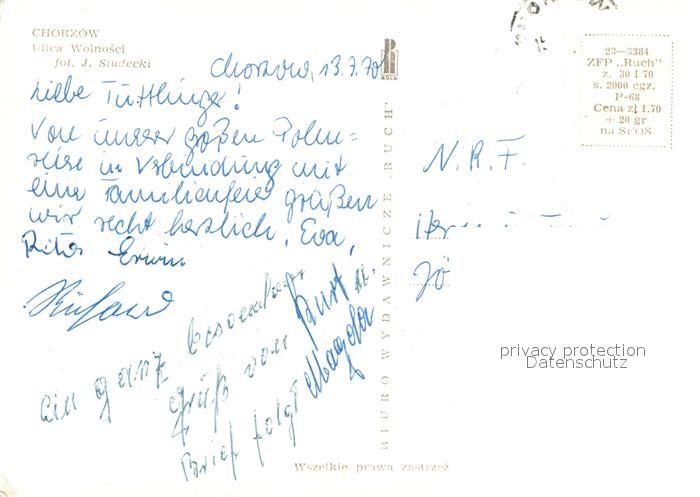 CHORZÓW
Ulica Wolności
fot. J. Siudecki
Chorzów, 13.7.70
Liebe Tuttlinger!
Von unser großen Polen=
reise in Verbindung mit
eine Familienfeier grüßen
wir recht herzlich, Eva,
Rita Erwin
Ein ganz besonderer
Gruß von Kurt u.
Brief folgt Magda
RUCH
BIURO WYDAWNICZE „RUCH”
23—3384
ZFP „Ruch”
z. 30 I 70
s. 2000 egz.
P-68
Cena zł 1,70
+ 20 gr
na SFOS
N.R.F.
privacy protection
Datenschutz
Wszelkie prawa zastrzeż